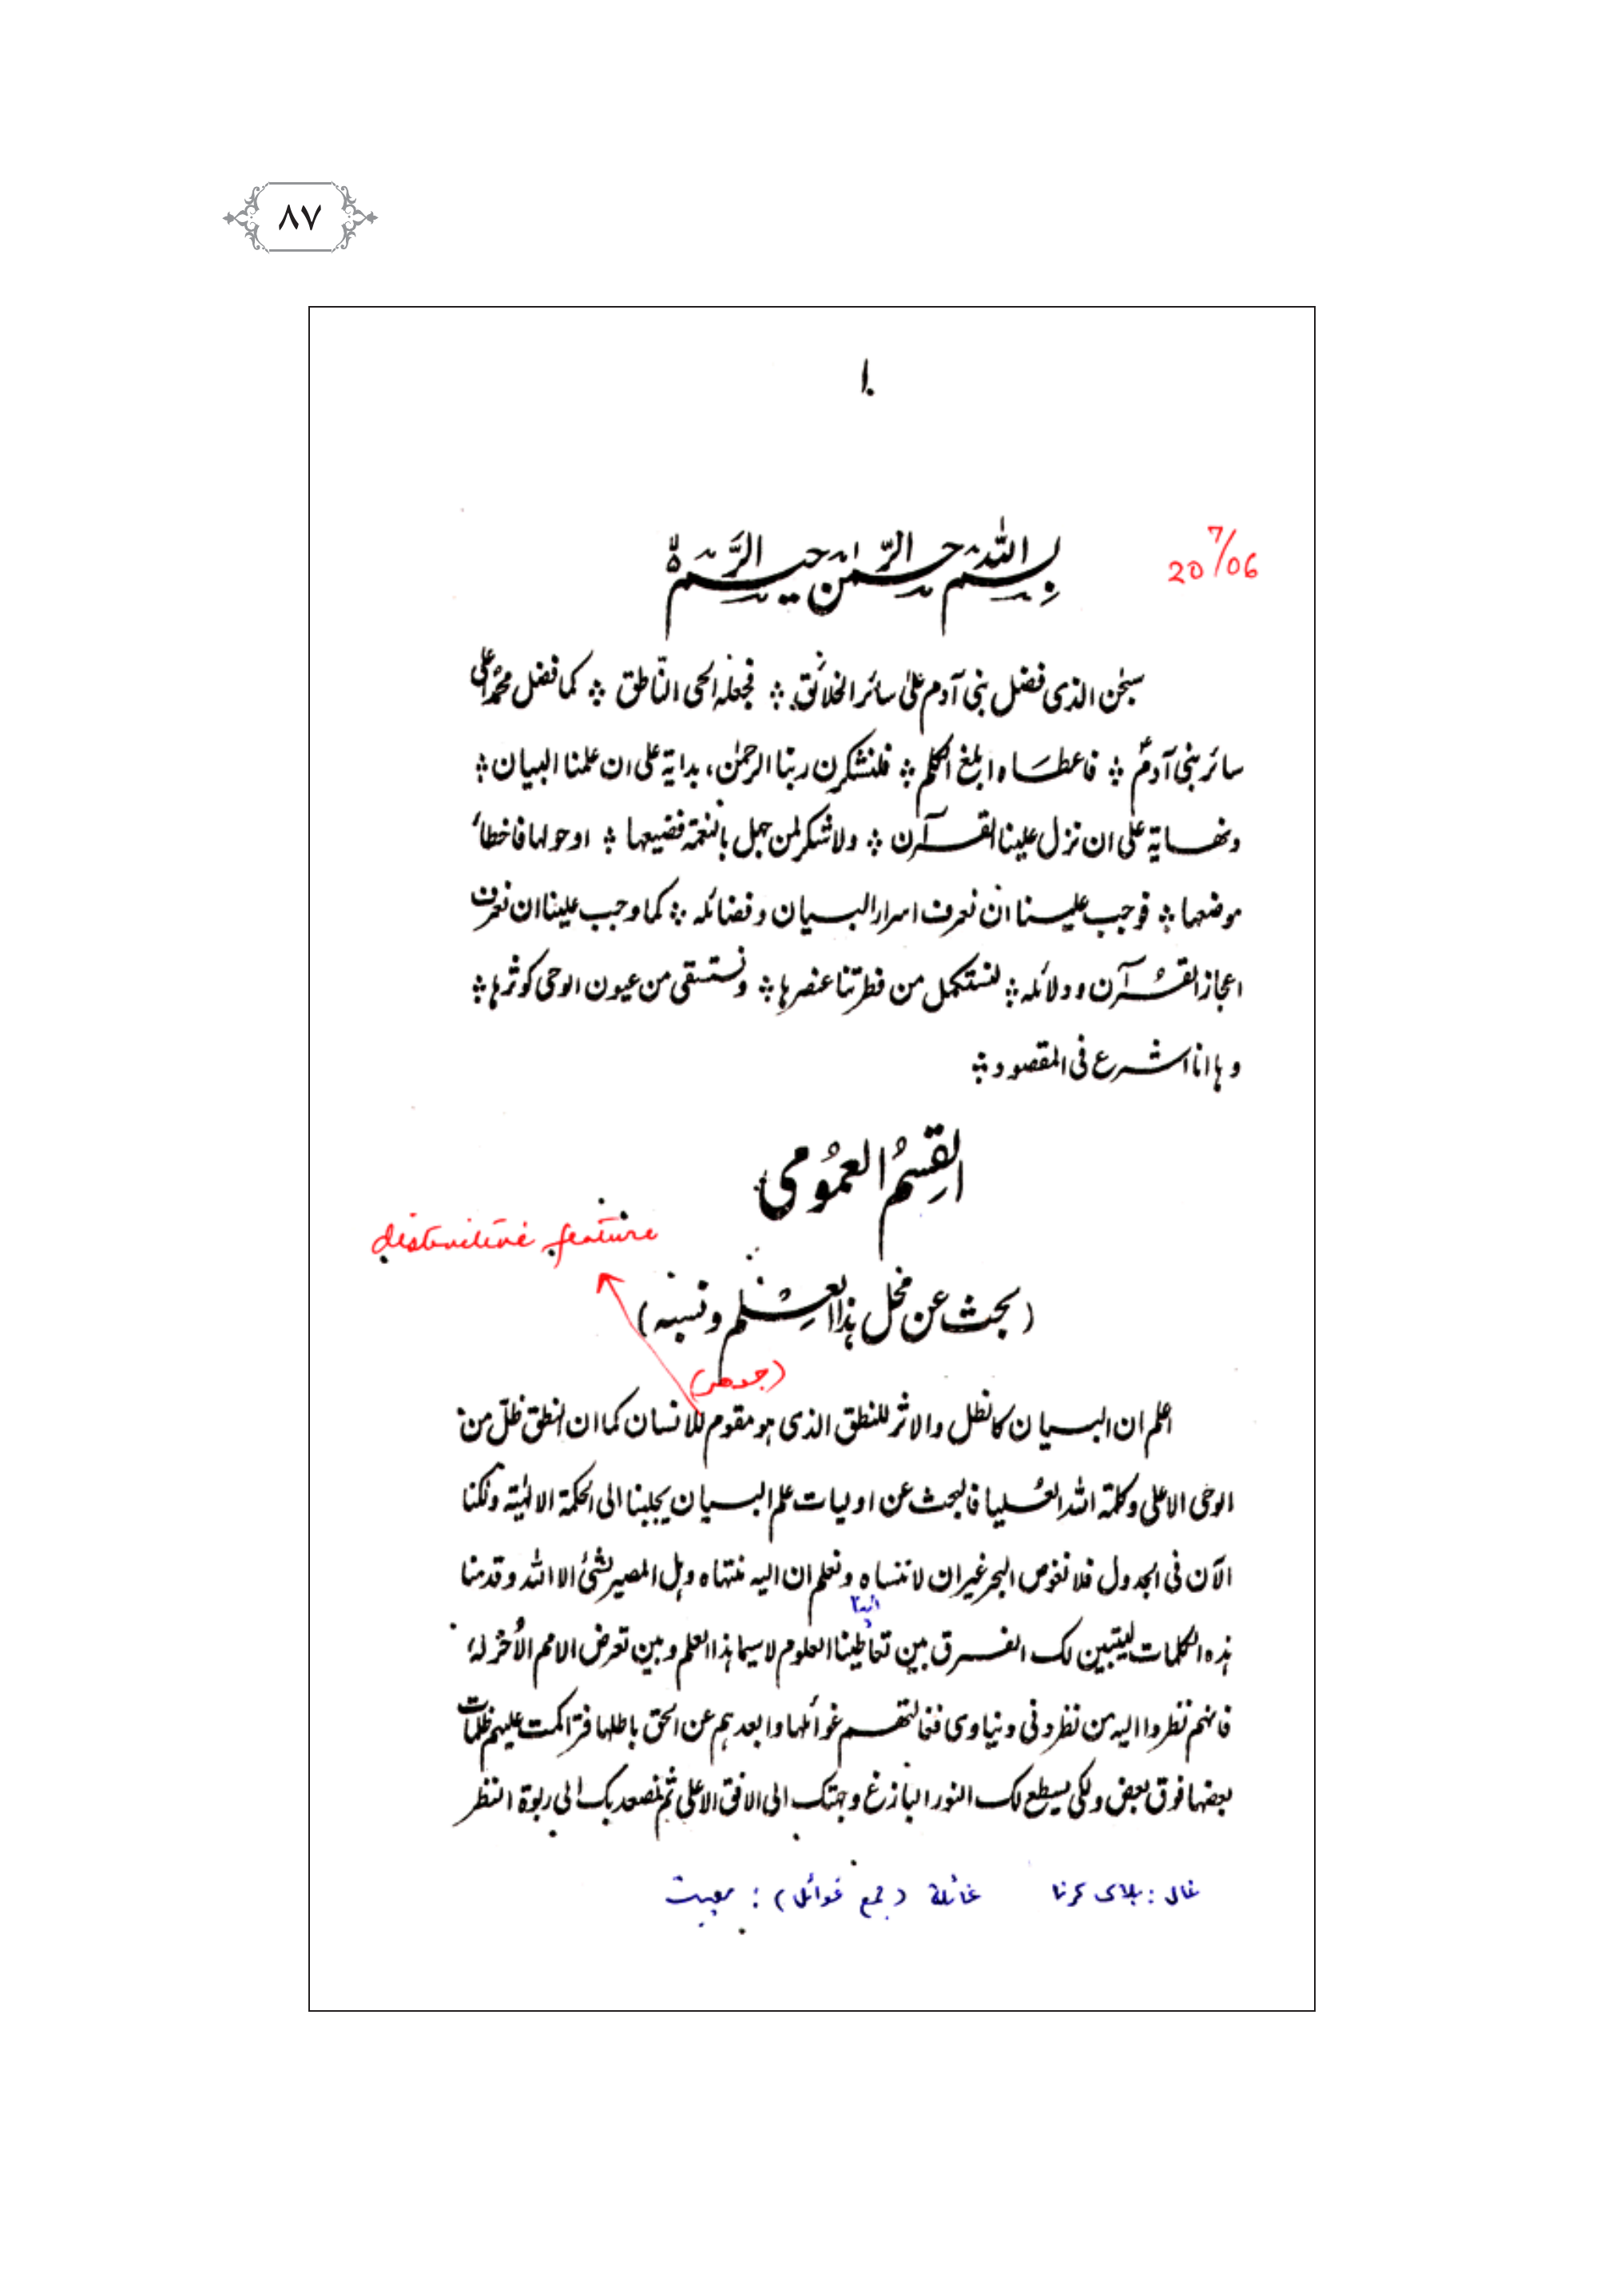 ٨٧
١
بِسم الله الرّحمٰن الرَّحيم ه
7/06
20
سبحٰن الذی فضل بنی آدم علیٰ سائر الخلائق ۞ فجعله الحی النّاطق ۞ کما فضل محمّدًا علی
سائر بنی آدم ۞ فاعطاه ابلغ الکلم ۞ فلنشکرن ربنا الرحمٰن، بدایة علی ان علمنا البیان ۞
ونهایة علی ان نزل علینا القرآن ۞ ولا شکر لمن جهل بالنعمة فضیعها ۞ او حولها فاخطأ
موضعها ۞ فوجب علینا ان نعرف اسرار البیان وفضائله ۞ کما وجب علینا ان نعرف
اعجاز القرآن ودلائله ۞ لنستکمل من فطرتنا عنصرها ۞ ونستسقی من عیون الوحی کوثرها ۞
وها انا اشرع فی المقصود ۞
القِسمُ العمُومی
distinctive feature
(بحث عن محل هذا العِلم ونسبته)
(جوهر)
اعلم ان البیان کالظل والاثر للنطق الذی هو مقوم للانسان کما ان النطق ظلّ من
الوحی الاعلی وکلمة الله العُلیا فالبحث عن اولیات علم البیان یجلبنا الی الحکمة الالٰهیّة ولکنا
الآن فی الجدول فلا نغوص البحر غیر ان لا ننساه ونعلم ان الیه منتهاه وهل المصیر لشئ الا الله وقدمنا
هذه الکلمات لیتبین لک الفرق بین تعاطینا العلوم لاسیما هذا العلم وبین تعرض الامم الأخر له
فانهم نظروا الیه من نظر دنی دنیاوی فغالتهم غوائلها وابعدهم عن الحق باطلها فتراکمت علیهم ظلمات
بعضها فوق بعض ولکی یسطع لک النور البازغ وجهتک الی الافق الاعلی ثم لنصعد بک الی ربوة النظر
غال : ہلاک کرنا غائلة (جمع غوائل) : مصیبت